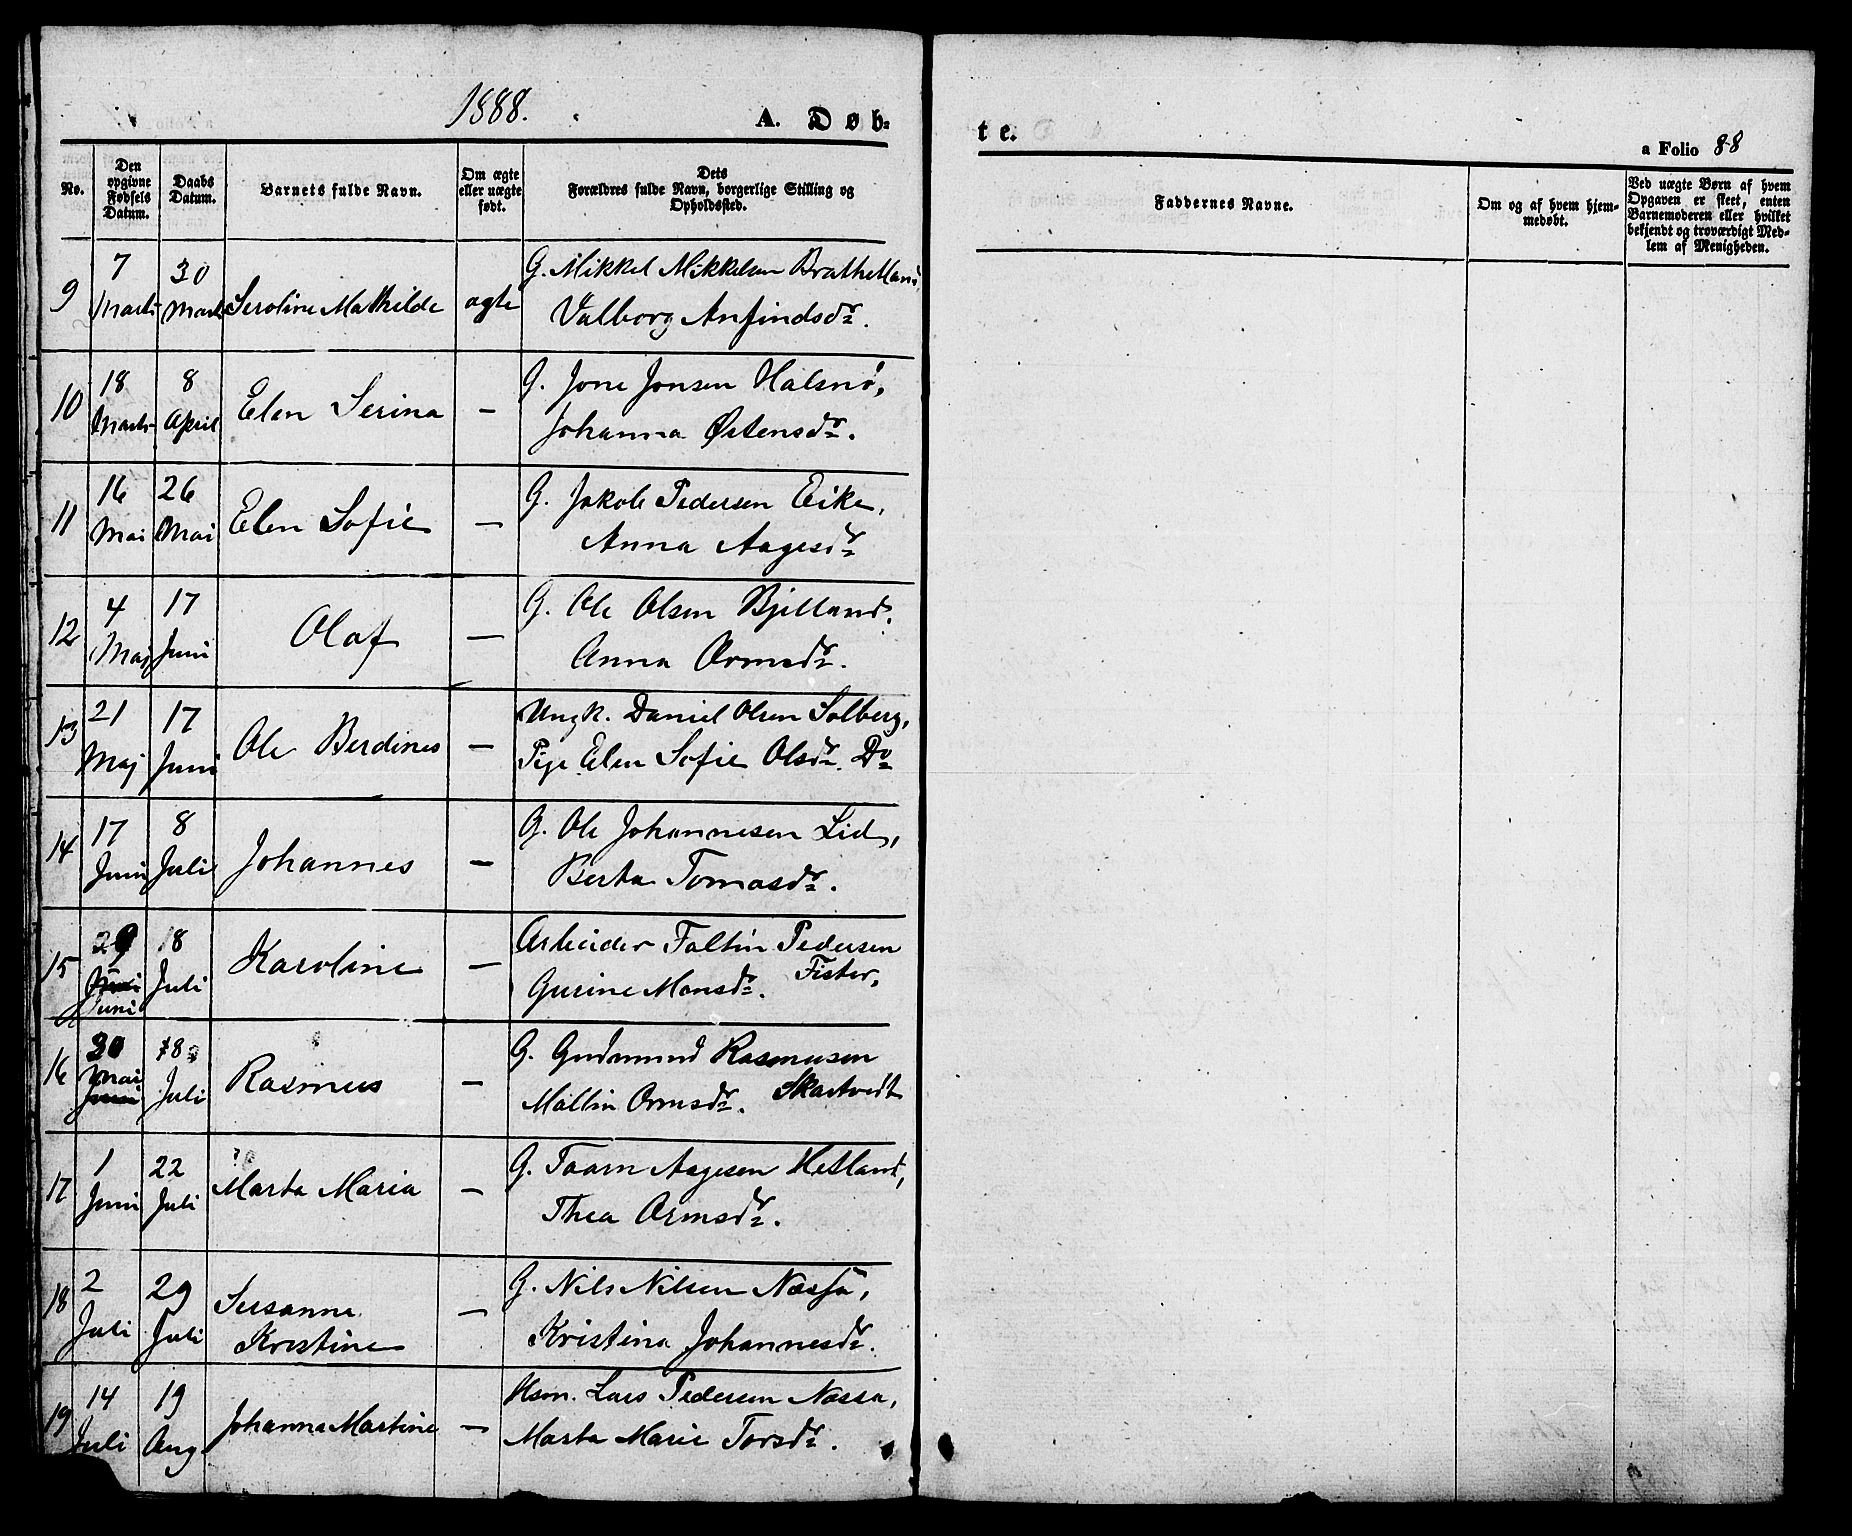 1888.
A. Døb-
te.
a Folio 88
No.
Den
opgivne
Fødsels
Datum.
Daabs
Datum.
Barnets fulde Navn.
Om ægte
eller uægte
født.
Dets
Forældres fulde Navn, borgerlige Stilling og
Opholdssted.
Faddernes Navne.
Om og af hvem hjem-
medøbt.
Ved uægte Børn af hvem
Opgaven er skeet, enten
Barnemoderen eller hvilket
bekjendt og troværdigt Med-
lem af Menigheden.
9
7
Marts
30
Marts
Seroline Mathilde
ægte
G. Mikkel Mikkelsen Brathetland,
Valborg Anfindsdr.
10
18
Marts
8
April
Elen Serina
—
G. Jone Jonsen Halsnø,
Johanna Østensdr.
11
16
Mai
26
Mai
Elen Sofie
—
G. Jakob Pedersen Eike,
Anna Aagesdr
12
4
Maj
17
Juni
Olaf
—
G. Ole Olsen Bjelland.
Anna Ormsdr.
13
21
Maj
17
Juni
Ole Berdines
—
Ungk. Daniel Olsen Solberg,
Pige Elen Sofie Olsdr. Do
14
17
Juni
8
Juli
Johannes
—
G. Ole Johannesen Lid,
Berta Tomasdr.
15
29
Juni
18
Juli
Karoline
—
Arbeider Faltin Pedersen
Fister,
Gurine Monsdr.
16
30
Mai
Juni
8
Juli
Rasmus
—
G. Gudmund Rasmusen
Skartvedt
Maltin Ormsdr.
17
1
Juni
22
Juli
Marta Maria
—
G. Taarn Aagesen Hetland,
Thea Ormsdr.
18
2
Juli
29
Juli
Susanne
Kristine
—
G. Nils Nilsen Næssa,
Kristina Johannesdr.
19
14
Juli
19
Aug
Johanne Martine
—
Hsm. Lars Pedersen Næssa,
Marta Marie Torsdr.